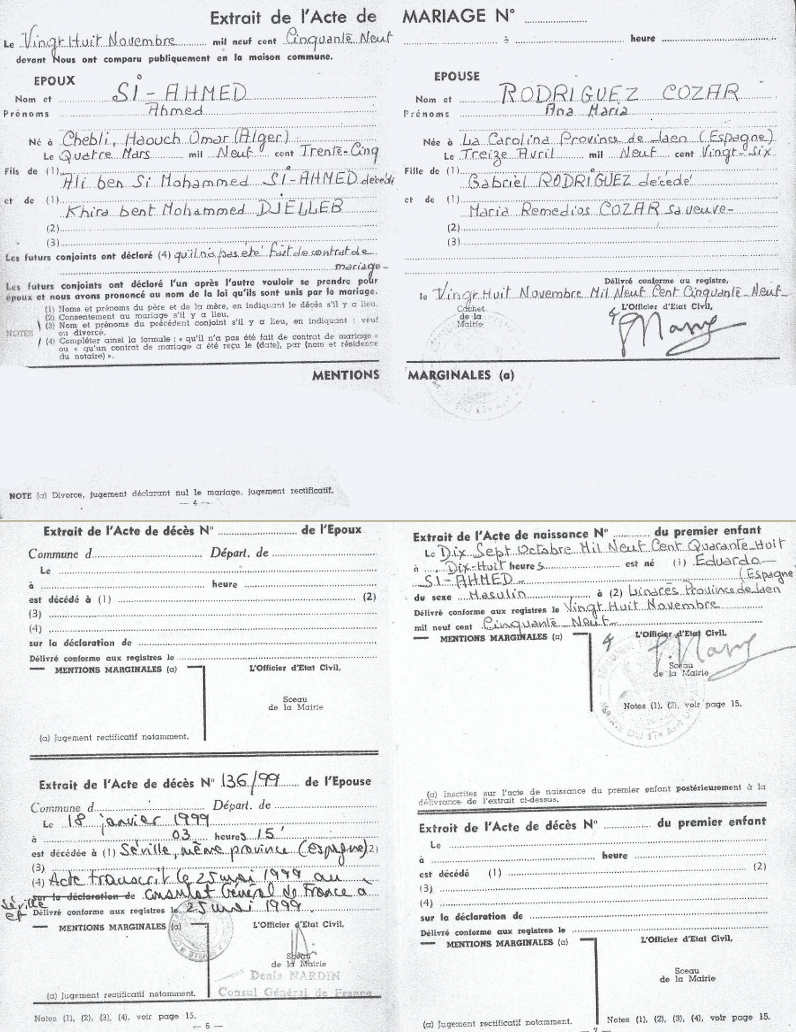 Extrait de l'Acte de MARIAGE N° ....................
Le Vingt Huit Novembre mil neuf cent Cinquante Neuf .................... à .................... heure ....................
devant Nous ont comparu publiquement en la maison commune.
EPOUX
Nom et SI-AHMED
Prénoms Ahmed
Né à Chebli, Haouch Omar (Alger)
Le Quatre Mars mil Neuf cent Trente-Cinq
Fils de (1) Ali ben Si Mohammed SI-AHMED décédé
et de (1) Khira bent Mohammed DJELLEB
(2)
(3)
Les futurs conjoints ont déclaré (4) qu'il n'a pas été fait de contrat de
mariage-
Les futurs conjoints ont déclaré l'un après l'autre vouloir se prendre pour
époux et nous avons prononcé au nom de la loi qu'ils sont unis par le mariage.
NOTES
(1) Noms et prénoms du père et de la mère, en indiquant le décès s'il y a lieu.
(2) Consentement au mariage s'il y a lieu.
(3) Nom et prénoms du précédent conjoint s'il y a lieu, en indiquant : veuf
ou divorcé.
(4) Compléter ainsi la formule : « qu'il n'a pas été fait de contrat de mariage »
ou « qu'un contrat de mariage a été reçu le (date), par (nom et résidence
du notaire) ».
EPOUSE
Nom et RODRIGUEZ COZAR
Prénoms Ana Maria
Née à La Carolina Province de Jaen (Espagne)
Le Treize Avril mil Neuf cent Vingt-six
Fille de (1) Gabriel RODRIGUEZ décédé
et de (1) Maria Remedios COZAR sa veuve-
(2)
(3)
Délivré conforme au registre,
le Vingt Huit Novembre Mil Neuf Cent Cinquante-Neuf-
Cachet
de la
Mairie
L'Officier d'Etat Civil,
MENTIONS MARGINALES (a)
NOTE (a) Divorce, jugement déclarant nul le mariage, jugement rectificatif.
— 4 —
Extrait de l'Acte de décès N° .................... de l'Epoux
Commune d .................... Départ. de ....................
Le ....................
à .................... heure ....................
est décédé à (1) .................... (2)
(3)
(4)
sur la déclaration de ....................
Délivré conforme aux registres le ....................
MENTIONS MARGINALES (a)
L'Officier d'Etat Civil,
Sceau
de la Mairie
(a) Jugement rectificatif notamment.
Extrait de l'Acte de décès N° 136/99 de l'Epouse
Commune d .................... Départ. de ....................
Le 18 janvier 1999
à 03 heures 15'
est décédée à (1) Séville, même province (espagne) (2)
(3)
(4) Acte transcrit le 25 mai 1999 au
sur la déclaration de Consulat Général de France à
Séville
et Délivré conforme aux registres le 25 mai 1999.
MENTIONS MARGINALES (a)
L'Officier d'Etat Civil,
Sceau
de la Mairie
Denis NARDIN
Consul Général de France
(a) Jugement rectificatif notamment.
Notes (1), (2), (3), (4), voir page 15.
— 6 —
Extrait de l'Acte de naissance N° .................... du premier enfant
Le Dix Sept Octobre Mil Neuf Cent Quarante Huit
à Dix-Huit heures est né (1) Eduardo
SI-AHMED
du sexe Masculin à (2) Linarès Province de Jaen (Espagne)
Délivré conforme aux registres le Vingt Huit Novembre
mil neuf cent Cinquante-Neuf
MENTIONS MARGINALES (a)
L'Officier d'Etat Civil.
Sceau
de la Mairie
Notes (1), (2), voir page 15.
(a) Inscrites sur l'acte de naissance du premier enfant postérieurement à la
délivrance de l'extrait ci-dessus.
Extrait de l'Acte de décès N° .................... du premier enfant
Le ....................
à .................... heure ....................
est décédé (1) .................... (2)
(3)
(4)
sur la déclaration de ....................
Délivré conforme aux registres le ....................
MENTIONS MARGINALES (a)
L'Officier d'Etat Civil,
Sceau
de la Mairie
(a) Jugement rectificatif notamment.
Notes (1), (2), (3), (4), voir page 15.
— 7 —